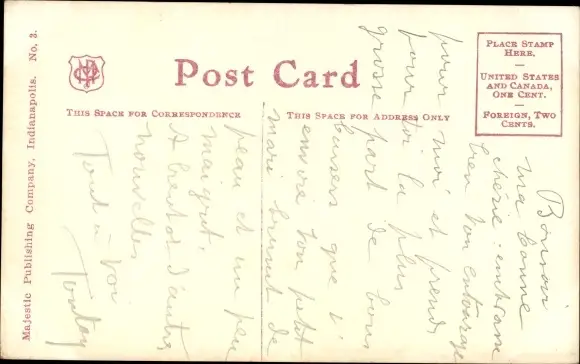 Majestic Publishing Company, Indianapolis. No. 3.
Post Card
THIS SPACE FOR CORRESPONDENCE
THIS SPACE FOR ADDRESS ONLY
PLACE STAMP
HERE.
UNITED STATES
AND CANADA,
ONE CENT.
FOREIGN, TWO
CENTS.
Bonsoir
ma bonne
cherie : embrasse
bien ton entourage
pour moi et prends
pour toi la plus
grosse part de bons
baisers que t'
envoie ton petit
mari brunit de
peau et un peu
maigrit.
A bientot d'autres
nouvelles
Tout à toi